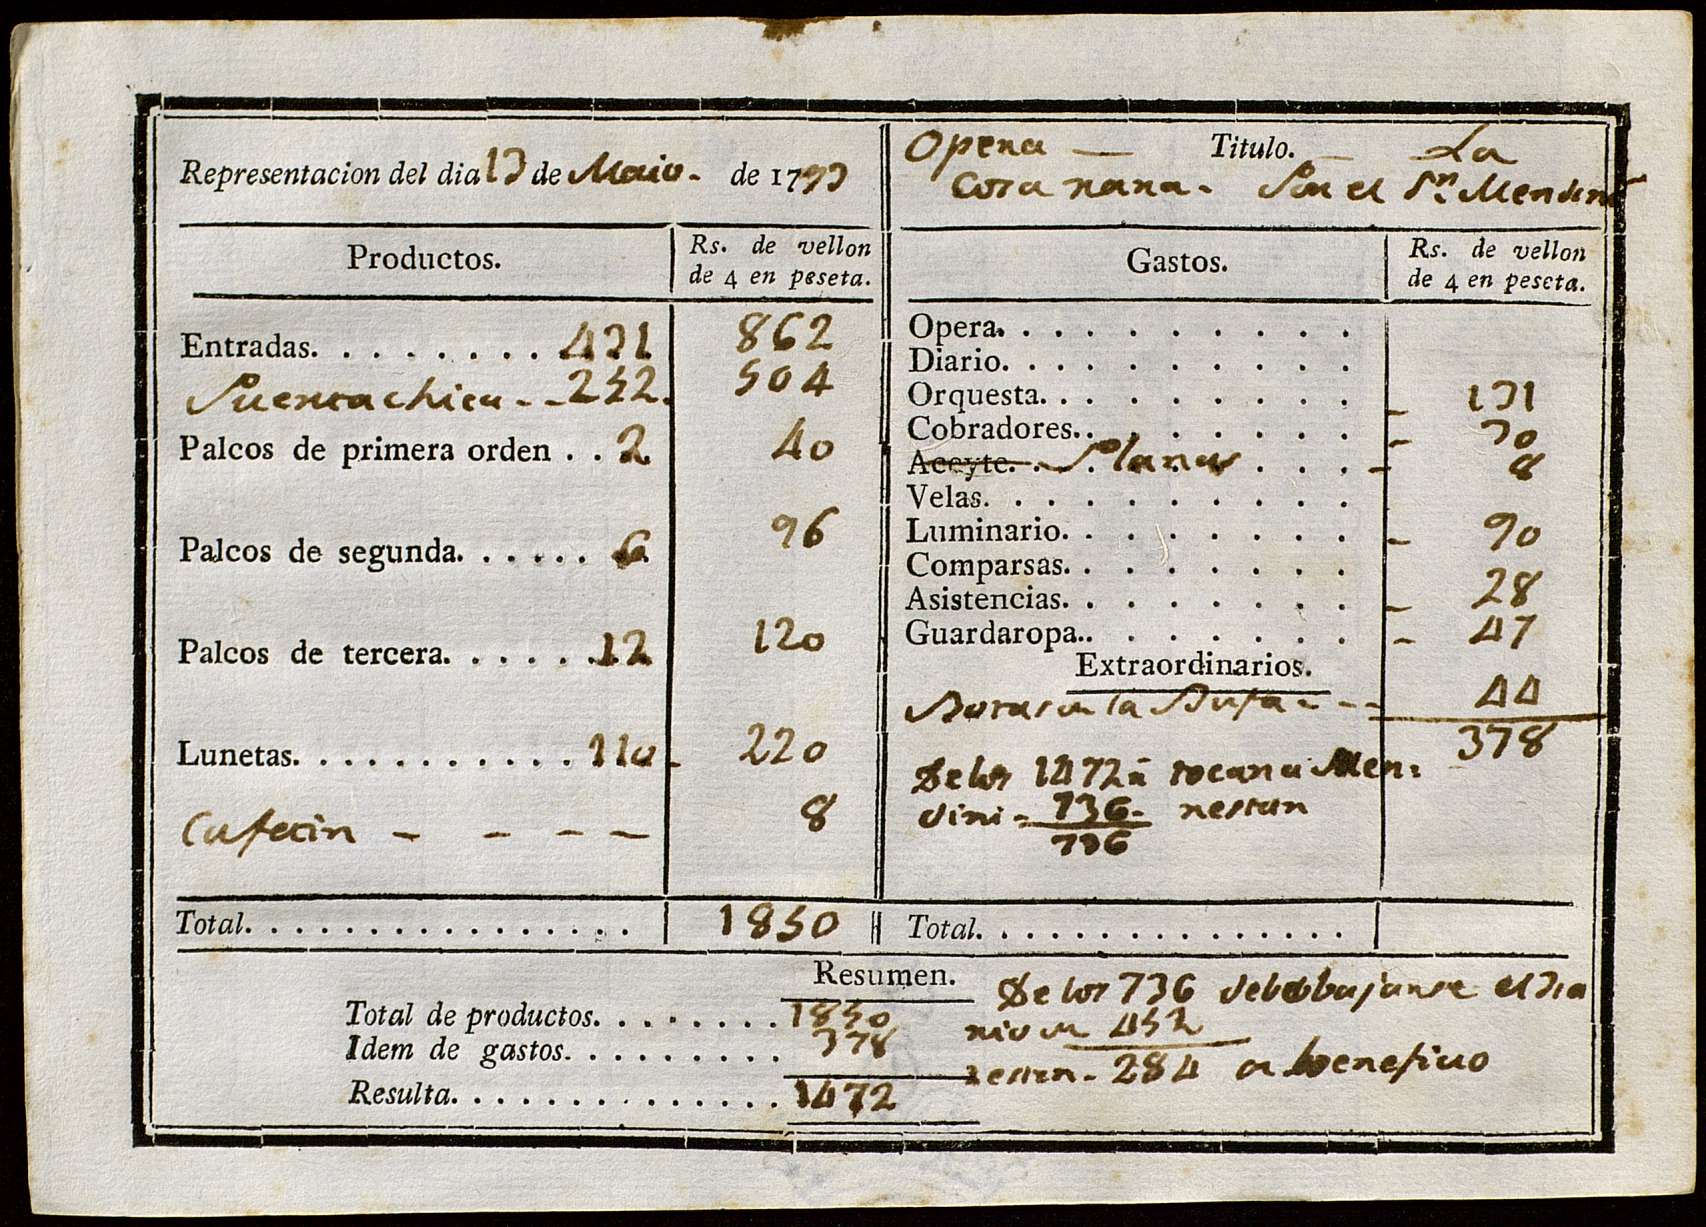 Representacion del dia 13 de Maio. de 1793
Opera — Titulo. — La
Cosa rara. Por el Sr. Mendini
Productos. Rs. de vellon
de 4 en peseta.
Entradas. . . . . . . . 431 862
Puerta chica - - 252. 504
Palcos de primera orden . . 2 40
Palcos de segunda. . . . . . 6 96
Palcos de tercera. . . . . . . 12 120
Lunetas. . . . . . . . . . . . 110 - 220
Cafetin - - - - 8
Total. . . . . . . . . . . . . . . . . 1850
Gastos. Rs. de vellon
de 4 en peseta.
Opera. . . . . . . . . .
Diario. . . . . . . . . .
Orquesta. . . . . . . . . - 131
Cobradores. . . . . . . . - 30
Aceyte. . Planas . . . - 8
Velas. . . . . . . . . .
Luminario. . . . . . . . - 90
Comparsas. . . . . . . .
Asistencias. . . . . . . . - 28
Guardaropa.. . . . . . . - 47
Extraordinarios.
la Bufa - - - 44
378
De los 1472 tocan a Men-
dini - 736 - restan
736
Total. . . . . . . . . . . . . . . .
Resumen.
Total de productos. . . . . . . . . 1850
Idem de gastos. . . . . . . . . . 378
Resulta. . . . . . . . . . . . . . . 1472
De los 736 bajarse el Dia
rio en 452
restan - 284 a beneficio